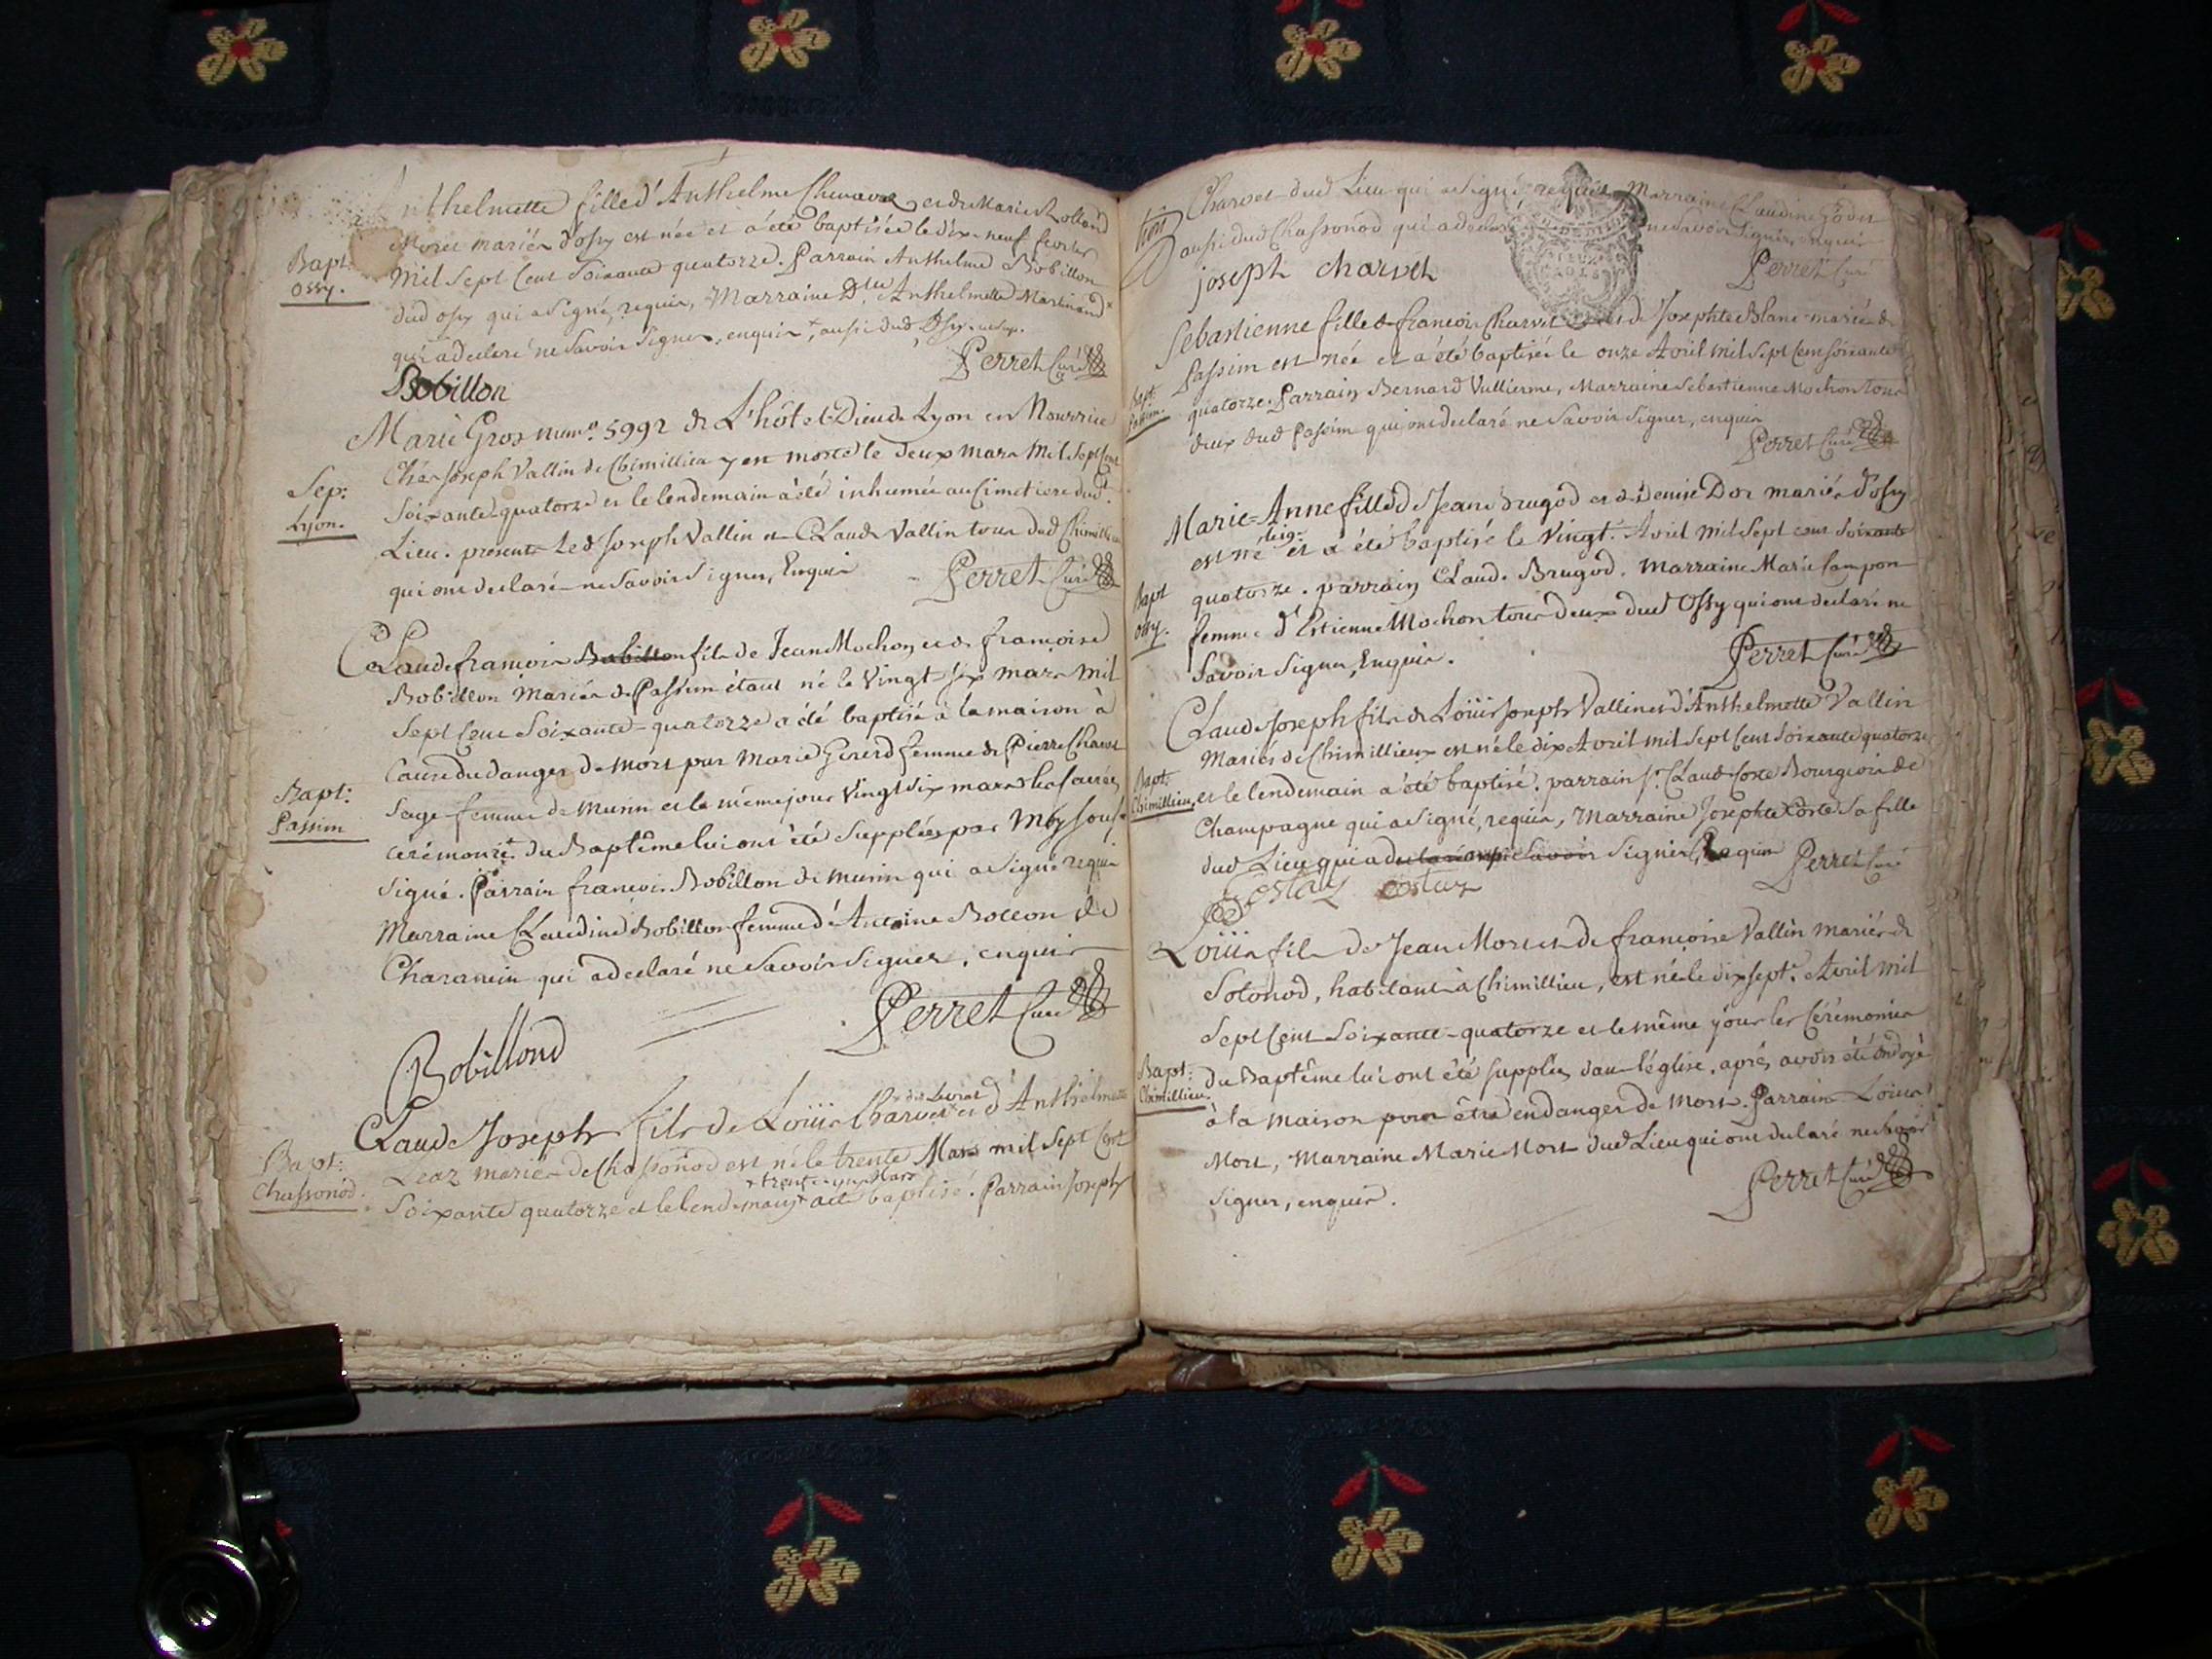 Anthelmette fille d'Anthelme Chevavoz et de Marie Rolland
Moret mariés d'ossy est née et a été baptisée le dix-neuf fevrier
Bapt:
Ossy.
mil Sept Cent Soixante quatorze. Parrain Anthelme Bobillon
dud ossy qui a Signé, requis, Marraine D.lle Anthelmette Martinand
qui a declaré ne Savoir Signer, enquise, + aussi dud Ossy.
Perret Curé
Bobillon
Marie Gros num.o 5992 de L'hôtel-Dieu de Lyon en Nourrice
Chés Joseph Vallin de Chimillieu y est morte le deux mars Mil Sept Cent
Sep:
Lyon.
Soixante-quatorze et le lendemain a été inhumée au Cimetiere dud.
Lieu. présents Led Joseph Vallin et Claude Vallin tous dud Chimillieu
qui ont declaré ne Savoir Signer, Enquis
Perret Curé
Claude françois Bobillon fils de Jean Mochon et de françoise
Bobillon Mariés de Passin étant né le Vingt-six mars mil
Sept Cent Soixante-quatorze a été baptisé à la maison à
Cause du danger de mort par Marie Girerd femme de Pierre Charvet
Bapt:
Passim
Sage-femme de Munin et le même jour Vingt Six mars les Sacrées
cerémonies du Baptême lui ont été Suppléées par Moy Sous-
Signé. Parrain françois Bobillon de munin qui a Signé requis
Marraine Claudine Bobillon femme d'Antoine Bollon de
Charancin qui a declaré ne Savoir Signer, enquise
Perret Curé
Bobilliond
Claude Joseph fils de Loüis Charvet + et d'Anthelmette
Bapt:
Chassonod.
Leaz mariés de Chassonod est né le trente Mars mil Sept Cent
+ trente-un Mars
Soixante quatorze et le lendemain + a été baptisé. Parrain Joseph
Charvet dud Lieu qui a Signé, requis, Marraine Claudine Godet
aussi dud Chassonod qui a declaré ne Savoir Signer, enquise
joseph charvet
Perret Curé
Sebastienne fille de françois Charvet et de Josephte Blanc mariés de
Passim est née et a été baptisée le onze Avril mil Sept Cent Soixante
Bapt:
Passim.
quatorze. Parrain Bernard Vullierme, Marraine Sebastienne Mochon tous
deux dud Passim qui ont declaré ne Savoir Signer, enquis
Perret Curé
Marie-Anne fille de Jean Brugod et de Denise Dor mariés d'ossy
est né et a été baptisé le Vingt. Avril mil Sept cent Soixante
Bapt
Ossy.
quatorze. parrain Claude Brugod. Marraine Marie Campon
femme d'Estienne Mochon tous deux dud Ossy qui ont declaré ne
Savoir Signer, Enquis.
Perret Curé
Claude Joseph fils de Loüis Joseph Vallin et d'Anthelmette Vallin
Mariés de Chimillieu est né le dix Avril mil Sept Cent Soixante quatorze
Bapt:
Chimillieu
et le lendemain a été baptisé. parrain S.r Claude Coste Bourgeois de
Champagne qui a Signé, requis, Marraine Josephte Coste Sa fille
dud Lieu qui a declaré ne Savoir Signer, Enquise
Perret Curé
Costaz costaz
Loüis fils de Jean Mort et de françoise Vallin mariés de
Sotonod, habitants à Chimillieu, est né le dix sept.e Avril mil
Sept Cent Soixante-quatorze et le même jour les Cérémonies
Bapt:
Chimillieu.
du Baptême lui ont été supplées dans l'église. aprés avoir été ondoyé
à la maison pour être en danger de mort. Parrain Loüis
Mort, Marraine Marie Mort dud Lieu qui ont declaré ne Savoir
Signer, enquis.
Perret Curé